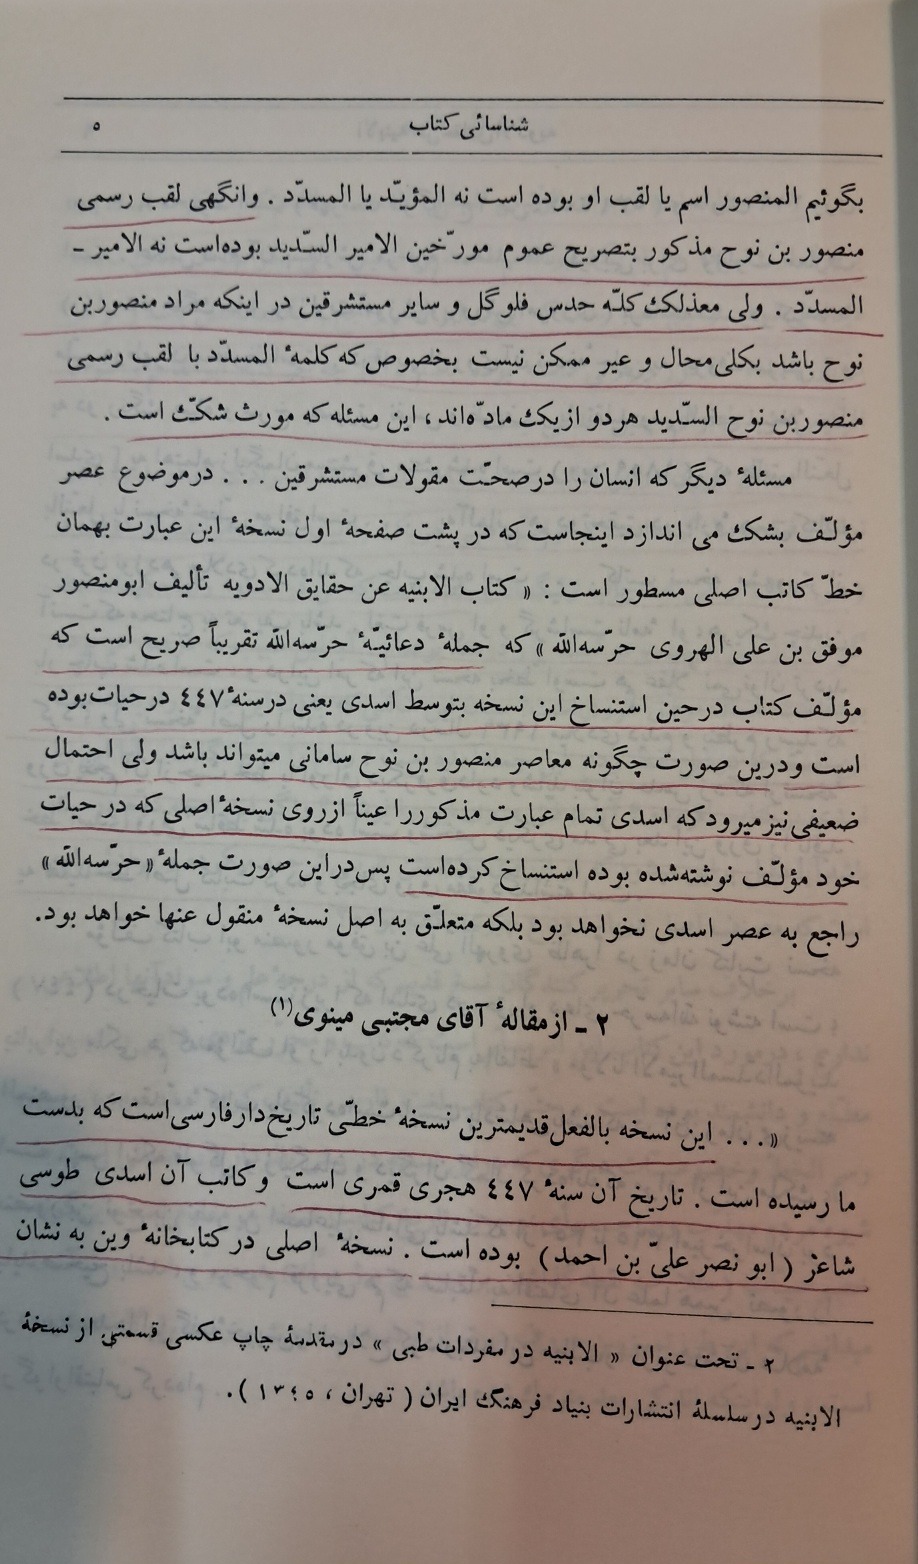 شناسائی کتاب ٥
بگوئیم المنصور اسم یا لقب او بوده است نه المؤیّد یا المسدّد . وانگهی لقب رسمی
منصور بن نوح مذکور بتصریح عموم مورّخین الامیر السّدید بوده‌است نه الامیر ـ
المسدّد . ولی معذلک کلّه حدس فلوگل و سایر مستشرقین در اینکه مراد منصوربن
نوح باشد بکلی محال و غیر ممکن نیست بخصوص که کلمهٔ المسدّد با لقب رسمی
منصوربن نوح السّدید هردو ازیک مادّه‌اند ، این مسئله که مورث شکّ است .
مسئلهٔ دیگر که انسان را درصحّت مقولات مستشرقین . . . درموضوع عصر
مؤلّف بشک می اندازد اینجاست که در پشت صفحهٔ اول نسخهٔ این عبارت بهمان
خطّ کاتب اصلی مسطور است : « کتاب الابنیه عن حقایق الادویه تألیف ابومنصور
موفق بن علی الهروی حرّسه‌الله » که جملهٔ دعائیّهٔ حرّسه‌الله تقریباً صریح است که
مؤلّف کتاب درحین استنساخ این نسخه بتوسط اسدی یعنی درسنهٔ ٤٤٧ درحیات‌بوده
است ودرین صورت چگونه معاصر منصور بن نوح سامانی میتواند باشد ولی احتمال
ضعیفی نیزمیرود که اسدی تمام عبارت مذکوررا عیناً ازروی نسخهٔ اصلی که در حیات
خود مؤلّف نوشته‌شده بوده استنساخ کرده‌است پس‌دراین صورت جملهٔ « حرّسه‌الله »
راجع به عصر اسدی نخواهد بود بلکه متعلّق به اصل نسخهٔ منقول عنها خواهد بود.
٢ ـ ازمقالهٔ آقای مجتبی مینوی(١)
« . . . این نسخه بالفعل قدیمترین نسخهٔ خطّی تاریخ‌دارفارسی‌است که بدست
ما رسیده است . تاریخ آن سنهٔ ٤٤٧ هجری قمری است و کاتب آن اسدی طوسی
شاعر ( ابو نصر علیّ بن احمد ) بوده است . نسخهٔ اصلی در کتابخانهٔ وین به نشان
٢ ـ تحت عنوان « الابنیه در مفردات طبی » در مقدمهٔ چاپ عکسی قسمتی از نسخهٔ
الابنیه در سلسلهٔ انتشارات بنیاد فرهنگ ایران ( تهران ، ١٣٤٥ ).